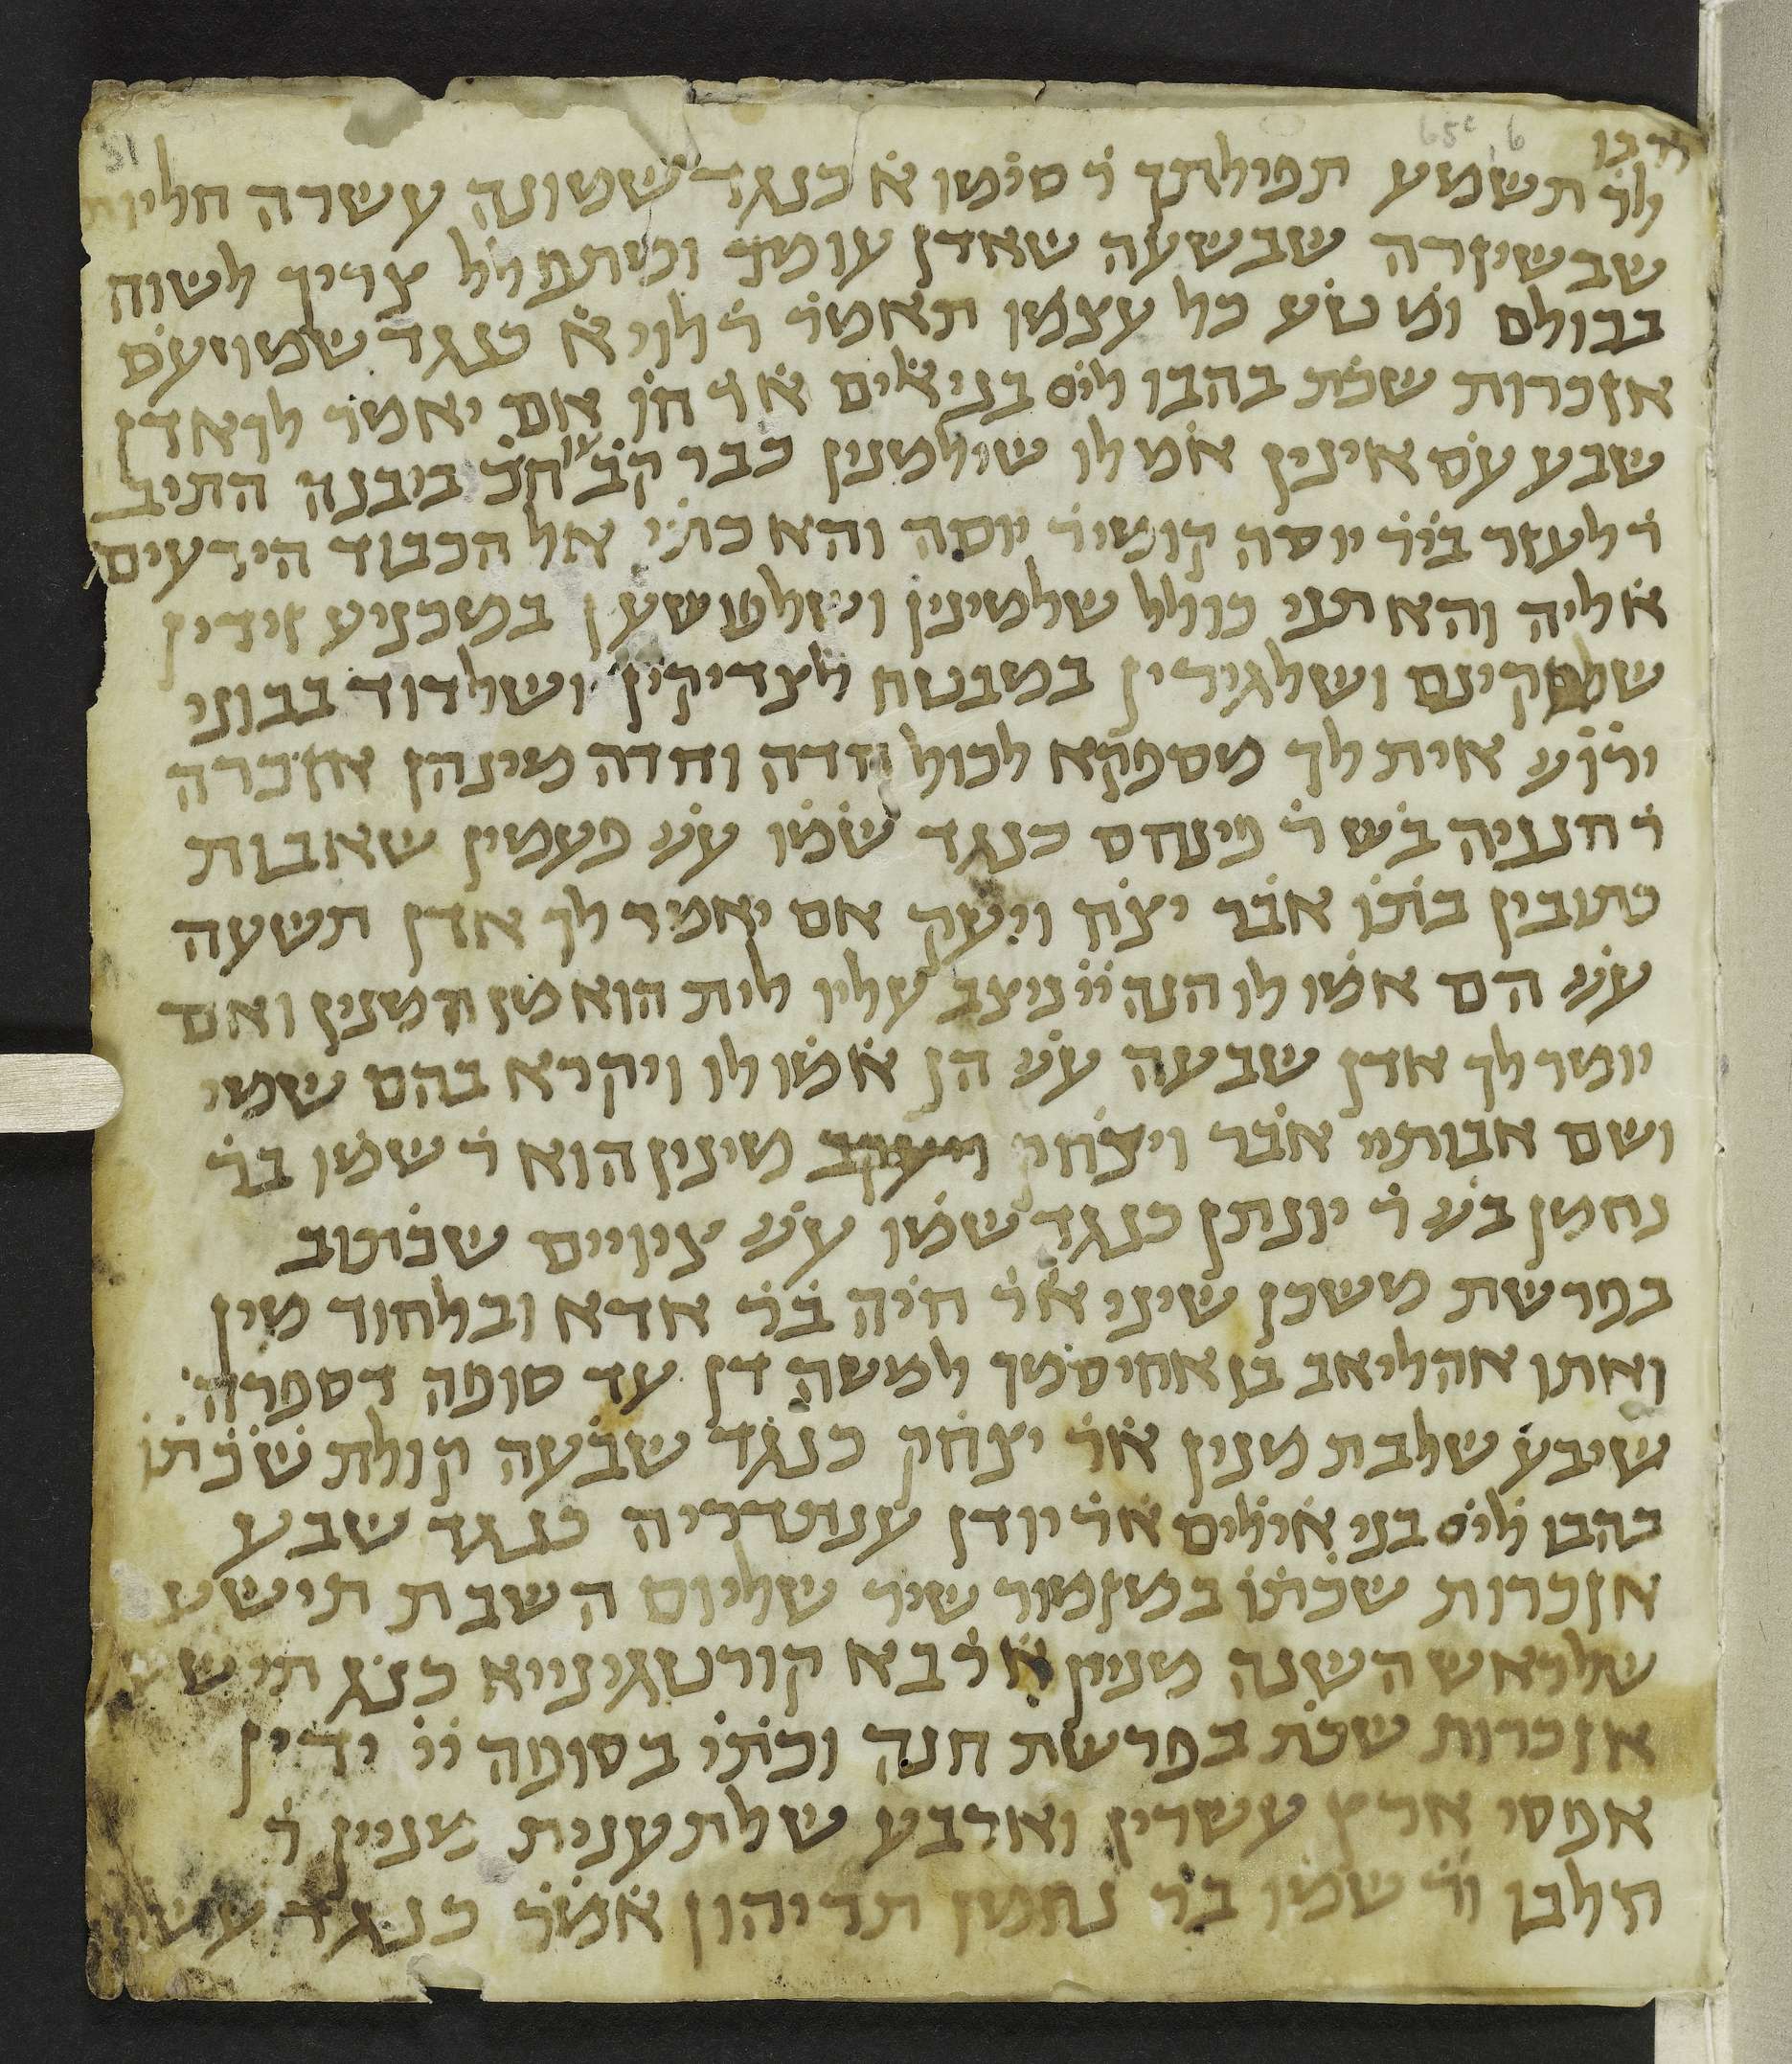 לך תשמע תפילתך ר סימון א כנגד שמונה עשרה חליות
שבשיזרה שבשעה שאדן עומד ומתפלל צריך לשוח
בכולם ומ טע כל עצמן תאמר ר לוי א כנגד שמוי עש
אזכרות שכת בהבו לייס בני אלים אר חו אם יאמר לך אדן
שבע עש אינין אמ לו שילמנין כבר קב חכ ביבנה התיב
ר לעזר ביר יוסה קומיר יוסה והא כתי אל הכבוד הירעים
אליה והא תני כולל שלמינין ושלפושען במכניע זידין
קינם ושלגירין במבטח לצדיקין ושלדוד בבוני
ירוע אית לך מספקא לכול חדה וחדה מינהן אזכרה
ר חנניה בש ר פינחס כנגד שמו עש פעמין שאבות
כתובין בתו אבר יצח ויעק אם יאמר לך אדן תשעה
עש הם אמו לו הנה ייי ניצב עליו לית הוא מן המנין ואם
יומר לך אדן שבעה עש הן אמו לו ויקרא בהם שמי
ושם אבותיי אבר ויצחי ויעקב מינין הוא ר שמון בר
נחמן בש ר יונתן כנגד שמו עש ציויים שכתוב
בפרשת משכן שיני אר חיה בר אדא ובלחוד מין
ואתו אהליאב בן אחיסמך למשה דן עד סופה דספרה
שיבע שלבת מנין אר יצחק כנגד שבעה קולת שכתו
בהבו לייס בני אילים אר יודן ענוטדריה כנגד שבע
אזכרות שכתו במזמור שיר שליום השבת תישע
שלראש השנה מנין אר בא קורטגינייא כנג תיש
אזכרות שכת בפרשת חנה וכתי בסופה ייי ידין
אפסי ארץ עשרין וארבע שלתענית מנין ר
חלבו ור שמו בר נחמן תריהון אמר כנגד עשרין